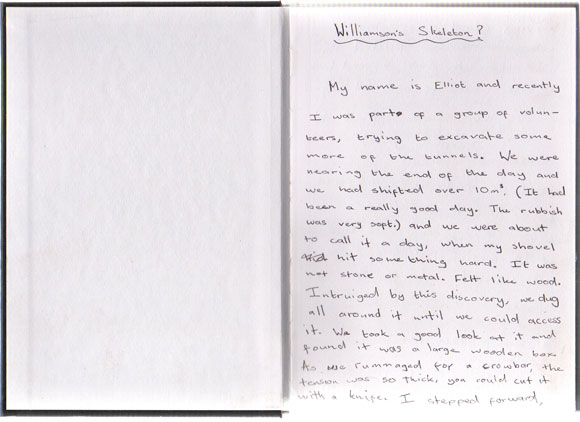 Williamson's Skeleton?
My name is Elliot and recently
I was part of a group of volun-
teers, trying to excavate some
more of the tunnels. We were
nearing the end of the day and
we had shifted over 10m³. (It had
been a really good day. The rubbish
was very soft.) and we were about
to call it a day, when my shovel
hit something hard. It was
not stone or metal. Felt like wood.
Intruiged by this discovery, we dug
all around it until we could access
it. We took a good look at it and
found it was a large wooden box.
As we rummaged for a crowbar, the
tension was so thick, you could cut it
with a knife. I stepped forward,